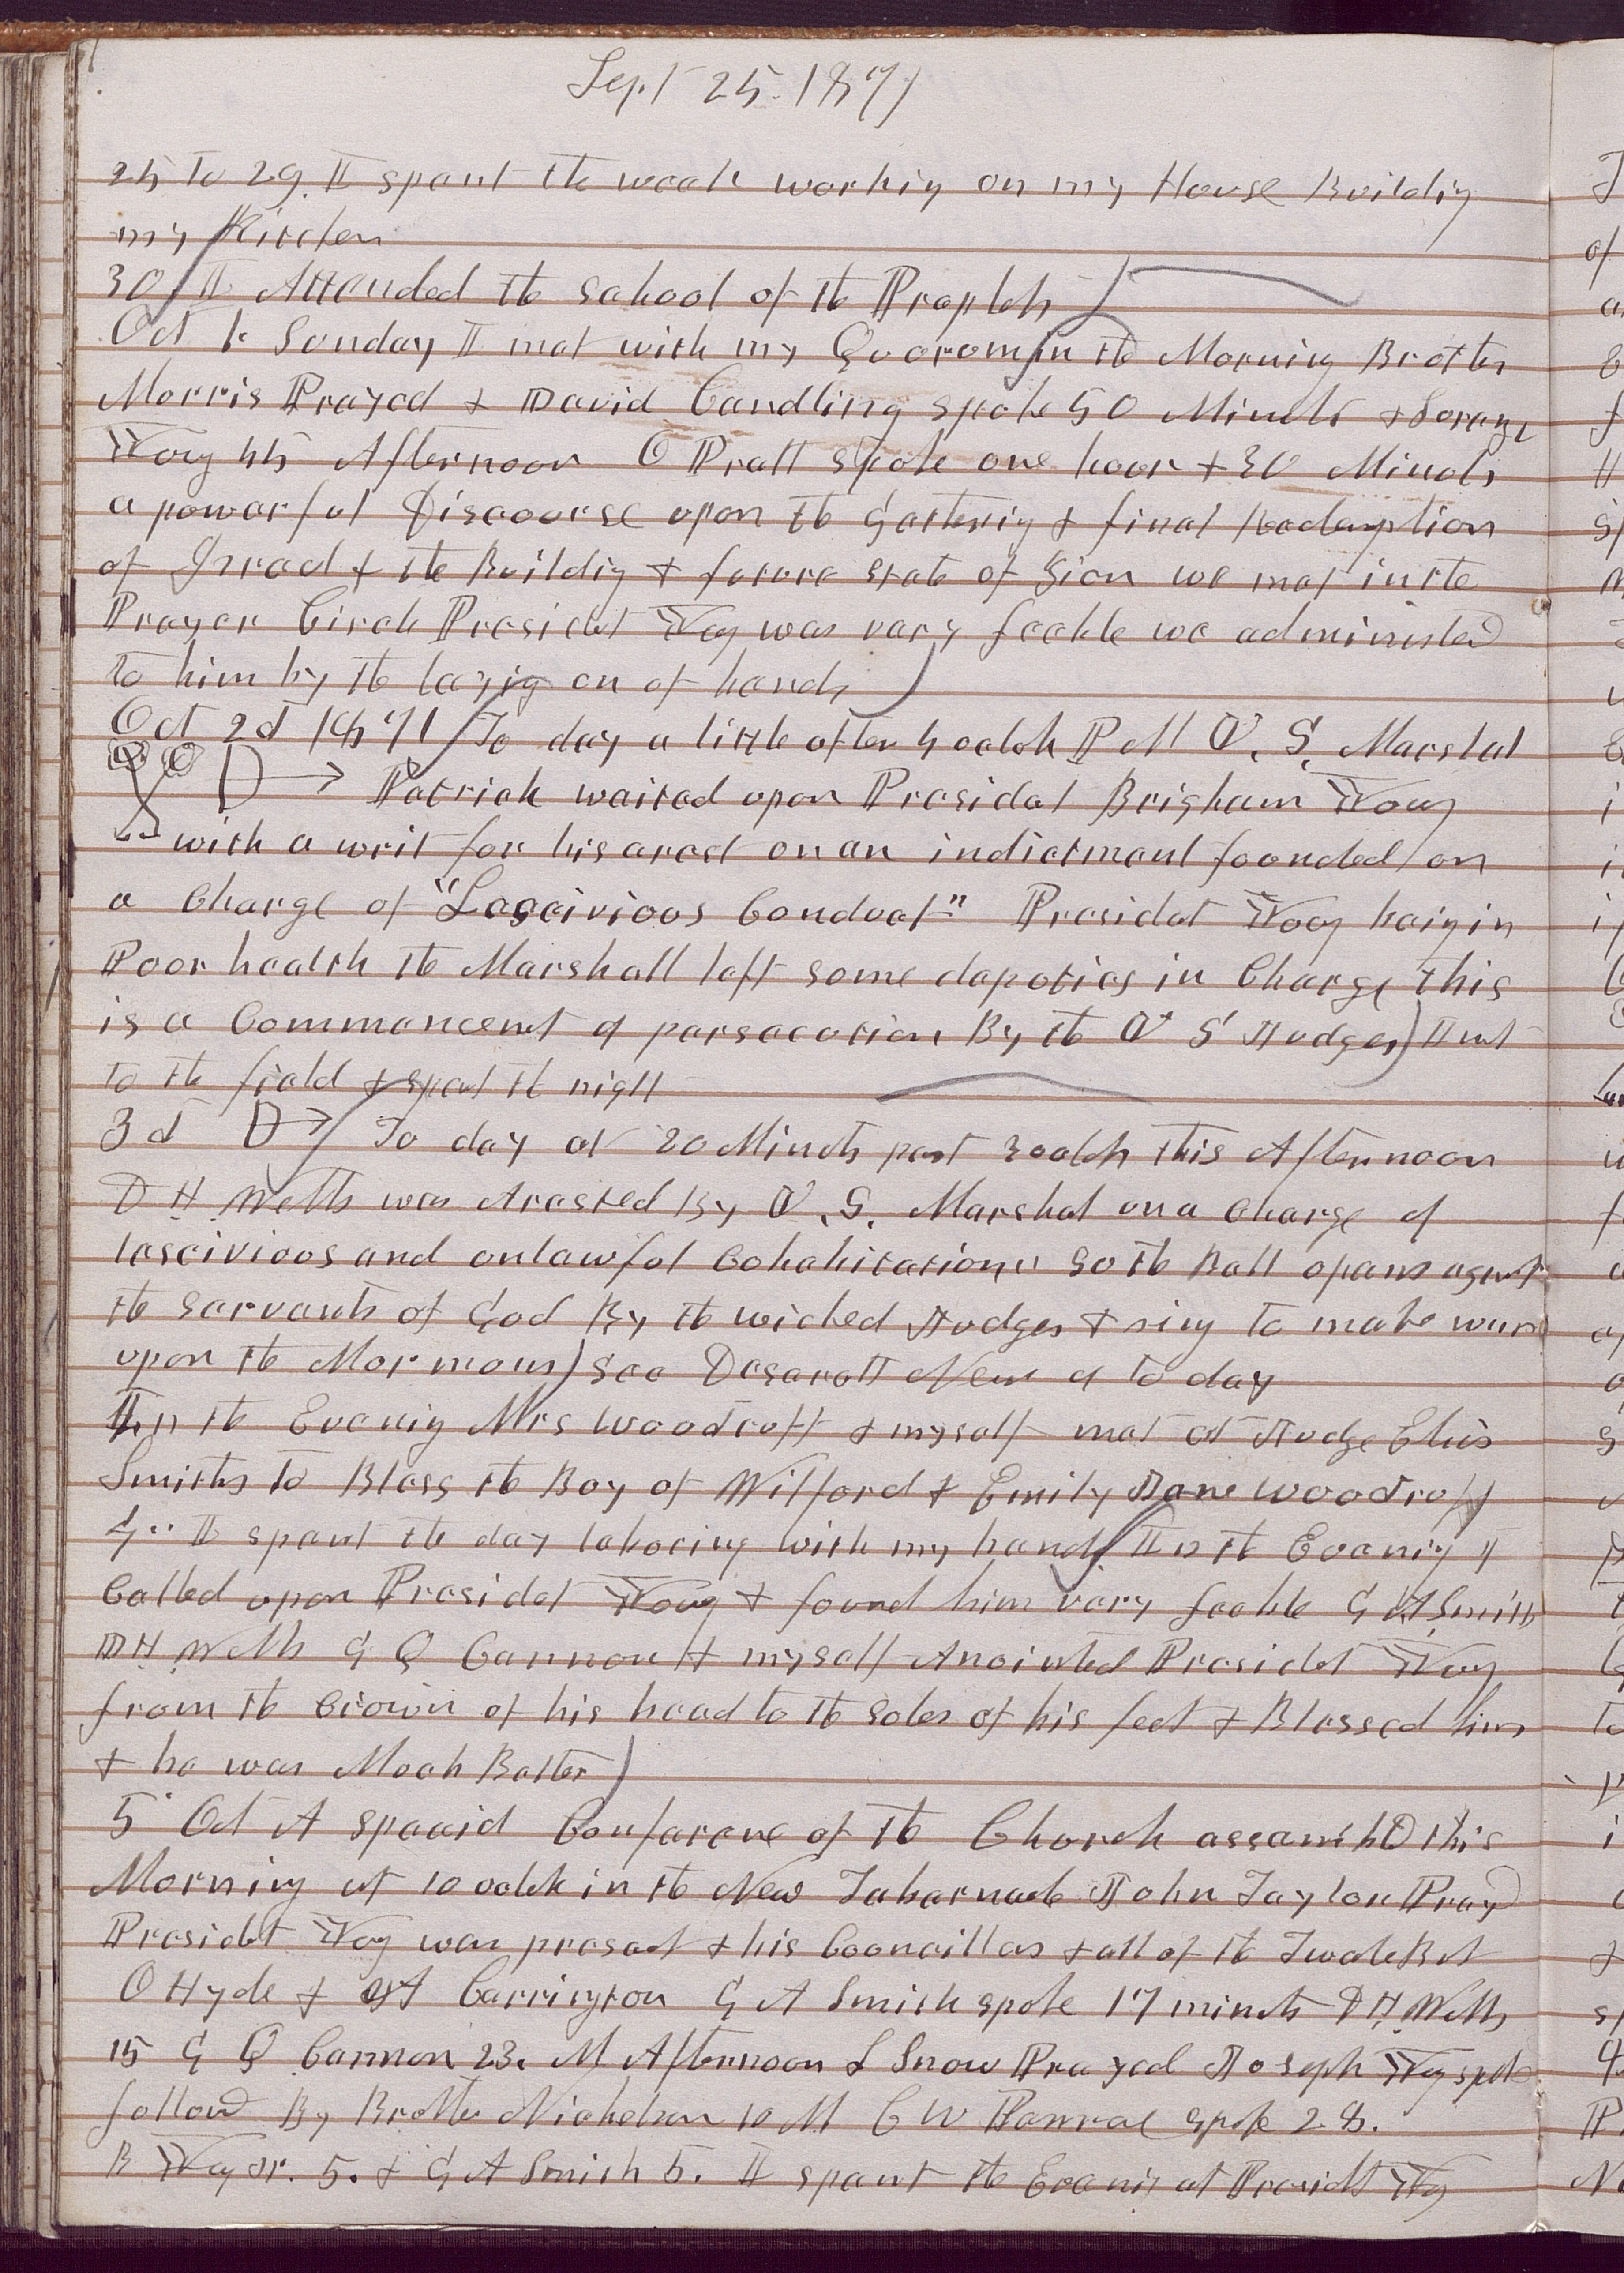 Sept 25. 1871
25 to 29. I spent the week working on my House Building
my Kitchen
30 I Attended the school of the Prophets
Oct 1. Sunday I met with my Quorum in the Morning Brother
Morris Prayed & David Candling spoke 50 Minuts & Lorenzo
Young 45 Afternoon O Pratt spoke one hour & 30 Minuts
a powerful Discourse upon the Gathering & final Redemption
of Israel & the Building & future state of Zion we met in the
Prayer Circle President Young was very feeble we administed
to him by the laying on of hands
Oct 2d 1871 To day a little after 4 oclok P M U. S. Marshal
Patrick waited upon President Brigham Young
with a writ for his arest on an indictment founded on
a Charge of "Lascivious Conduct" President Young being in
Poor health the Marshall left some deputies in Charge this
is a Commencent of persecution By the U S Judges) I went
to the field & spent the night
3d To day at 20 Minuts past 3 oclok this Afternoon
D. H. Wells was Arested By U. S. Marshal on a Charge of
lascivious and unlawful Cohabitation" So the Ball opens against
the Servants of God By the wicked Judges trying to make war
upon the Mormons) see Deserett News of to day
In the Evening Mrs Woodruff & myself met at Judge Elias
Smiths to Bless the Boy of Wilford & Emily Jane Woodruff
4 I spent the day laboring with my hands In the Evening I
Called upon President Young & found him very feeble G A Smith
D H. Wells G Q Cannon & myself Anointed President Young
from the Crown of his head to the Soles of his feet & Blessed him
& he was Much Better)
5 Oct A Special Conference of the Church assembled this
Morning at 10 oclok in the New Tabernacle John Taylor Prayed
President Young was present & his Councillors & all of the Twelve But
O Hyde & A Carrington G A Smith spoke 17 minuts D. H. Wells
15 G Q Cannon 23. M Afternoon L Snow Prayed Joseph Young spoke
follow'd By Brother Nicholson 10 M C W Penrose spoke 28.
B Young Jr. 5. & G A Smith 5. I spent the Evening at President Youngs